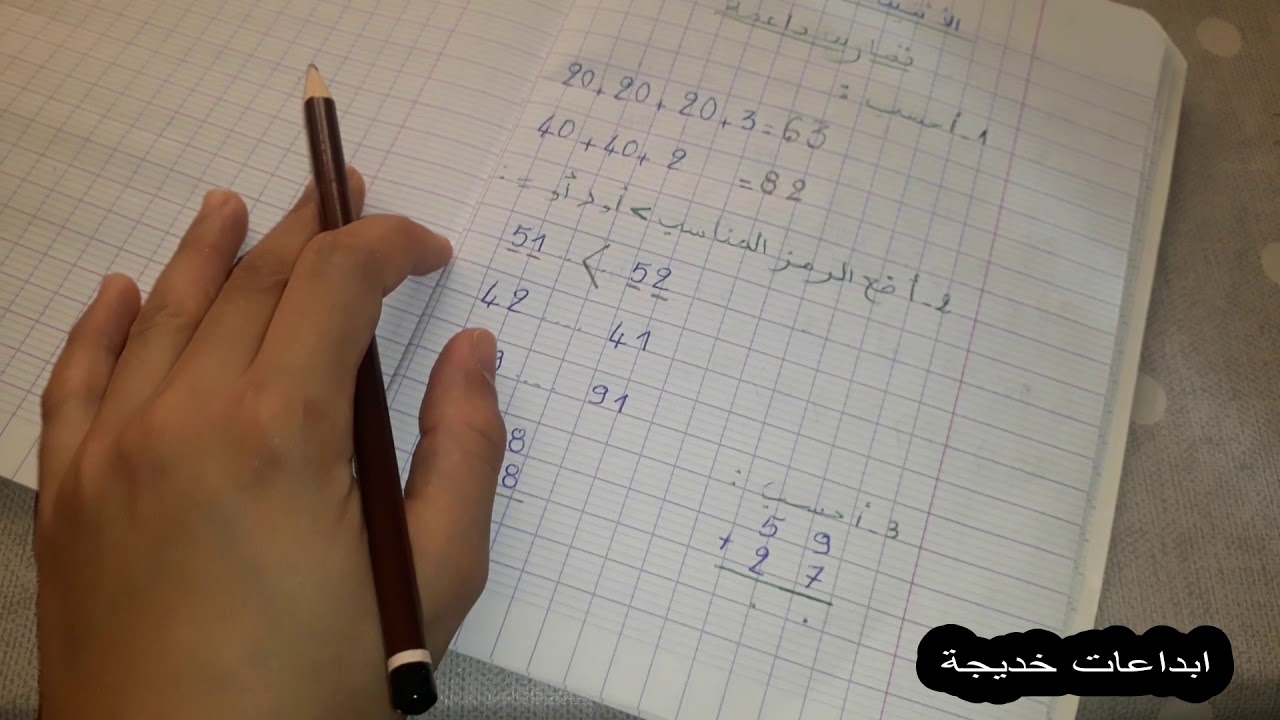 تمارين داعمة
1 - أحسب :
20 + 20 + 20 + 3 = 63
40 + 40 + 2 = 82
2 - أضع الرمز المناسب > أو < أو = :
51 < 52
42 ..... 41
..... 91
3 - أحسب :
8
5 9
8
+ 2 7
ابداعات خديجة